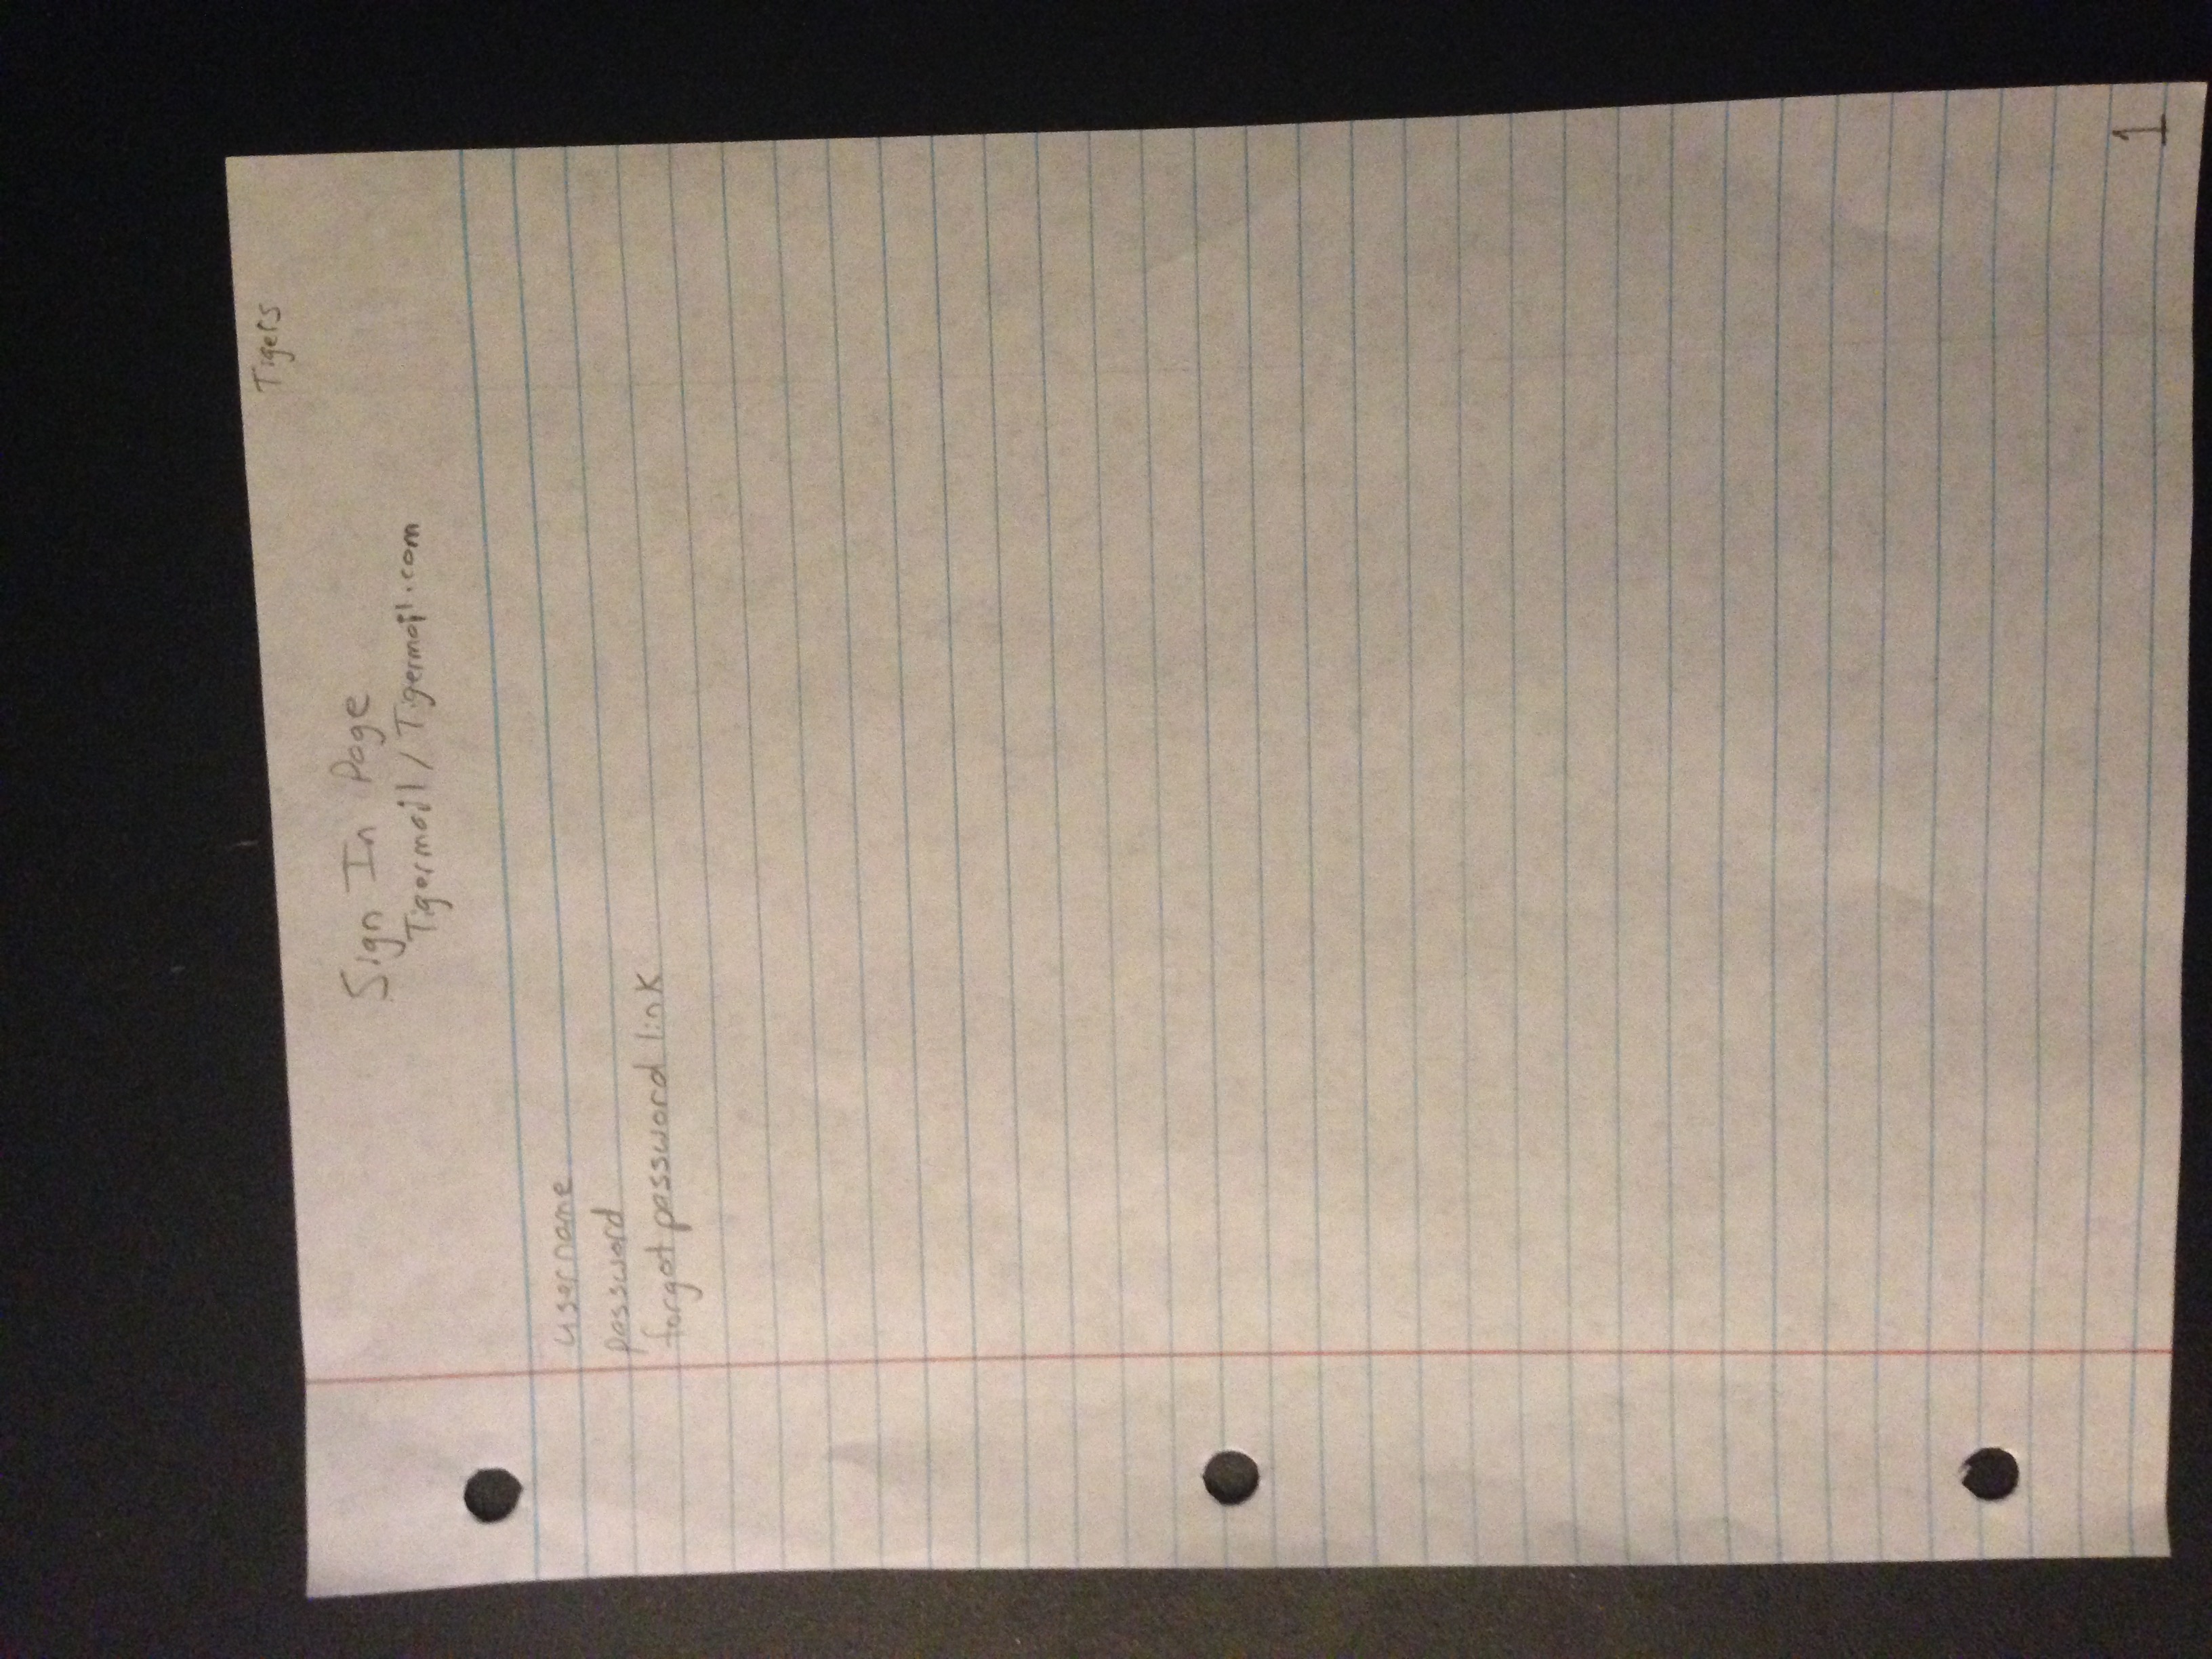 Tigers
Sign In Page
Tigermail / Tigermail.com
username
password
forgot password link
1